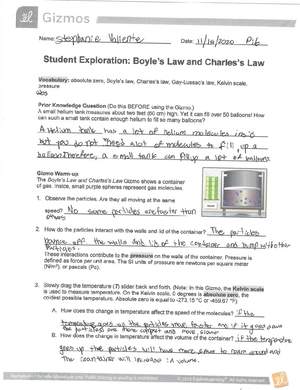 Gizmos
Name: Stephanie Valiente Date: 11/18/2020 P:6
Student Exploration: Boyle's Law and Charles's Law
Vocabulary: absolute zero, Boyle's law, Charles's law, Gay-Lussac's law, Kelvin scale,
pressure
Prior Knowledge Question (Do this BEFORE using the Gizmo.)
A small helium tank measures about two feet (60 cm) high. Yet it can fill over 50 balloons! How
can such a small tank contain enough helium to fill so many balloons?
A helium tank has a lot of helium molecules
but you do not need a lot of molecules to fill up a
balloon. Therefore, a small tank can fill up a lot of balloons
Gizmo Warm-up
The Boyle's Law and Charles's Law Gizmo shows a container
of gas. Inside, small purple spheres represent gas molecules.
1. Observe the particles. Are they all moving at the same
speed? No some particles are faster than
others
2. How do the particles interact with the walls and lid of the container? The particles
bounce off the walls and lid of the container and bump with other
particles.
These interactions contribute to the pressure on the walls of the container. Pressure is
defined as force per unit area. The SI units of pressure are newtons per square meter
(N/m²), or pascals (Pa).
3. Slowly drag the temperature (T) slider back and forth. (Note: In this Gizmo, the Kelvin scale
is used to measure temperature. On the Kelvin scale, 0 degrees is absolute zero, the
coldest possible temperature. Absolute zero is equal to -273.15 °C or -459.67 °F.)
A. How does the change in temperature affect the speed of the molecules? if the
temperature goes up the particles move faster and if it goes down
the particles are more and move slower
B. How does the change in temperature affect the volume of the container? if the temperature
goes up the particles will have more space to roam around and
the container will increase in volume.